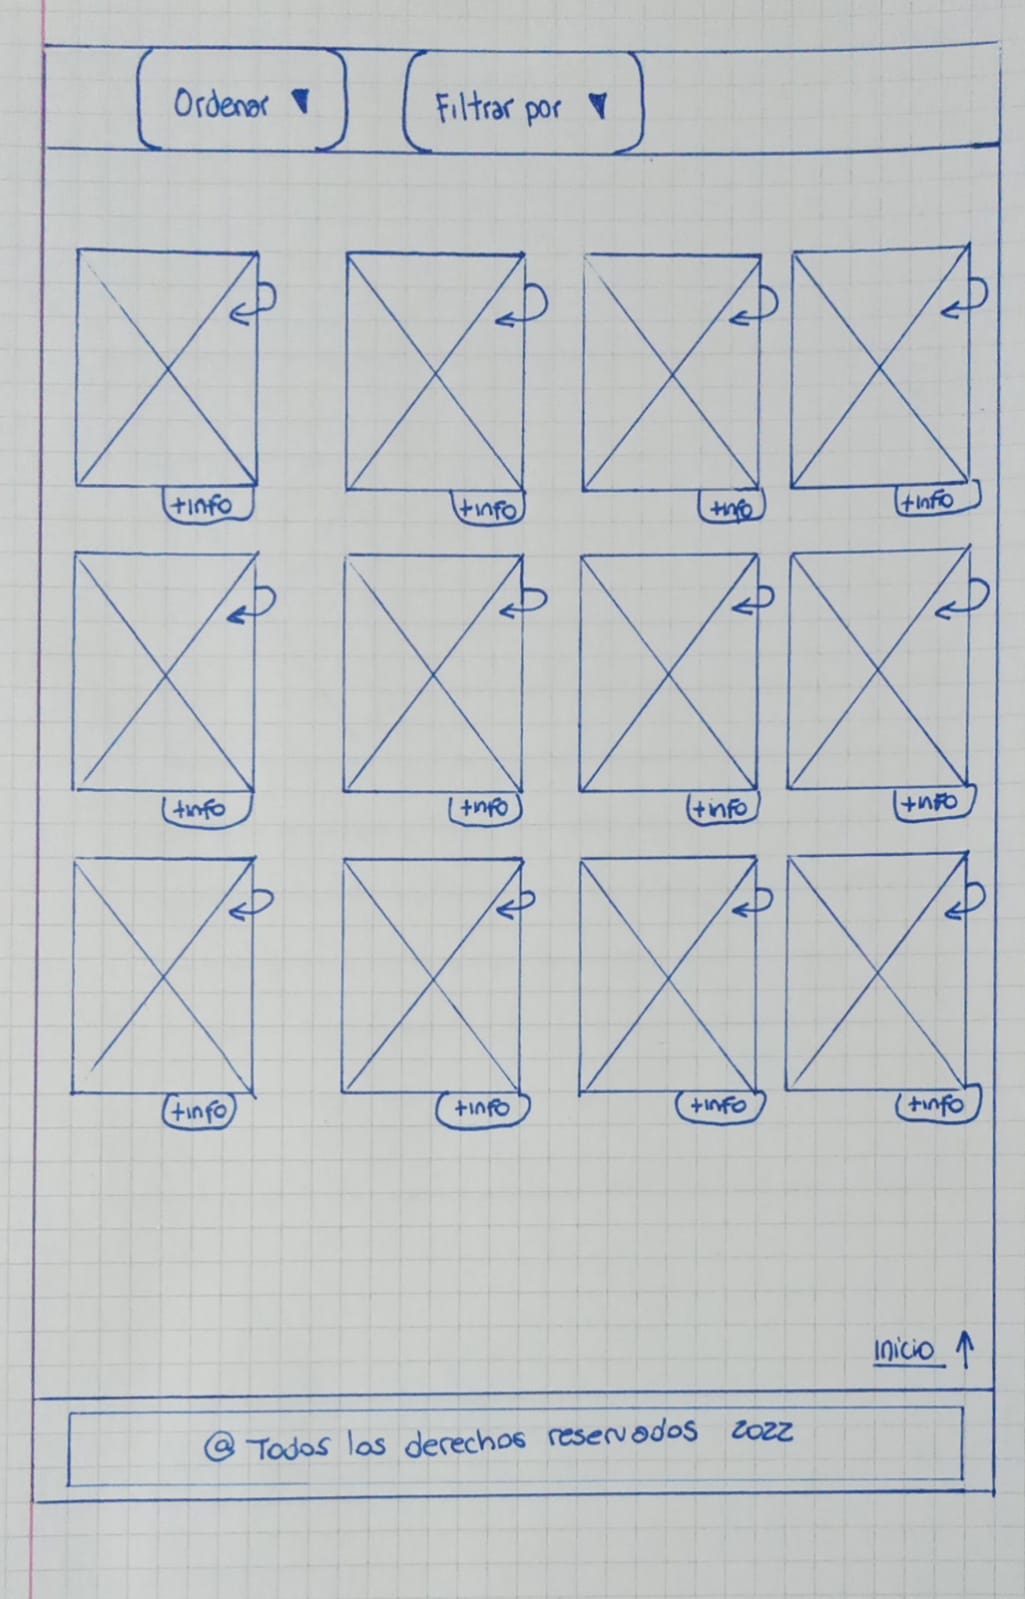 Ordenar ▼ Filtrar por ▼
+info +info +info +info
+info +info +info +info
+info +info +info +info
Inicio ↑
@ Todos los derechos reservados 2022